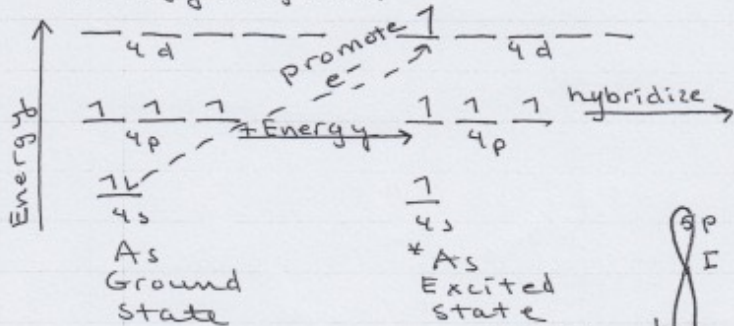 4d
promote
e-
4d
Energy
4p
+ Energy
4p
hybridize
4s
4s
As
Ground
state
*As
Excited
state
5p
I